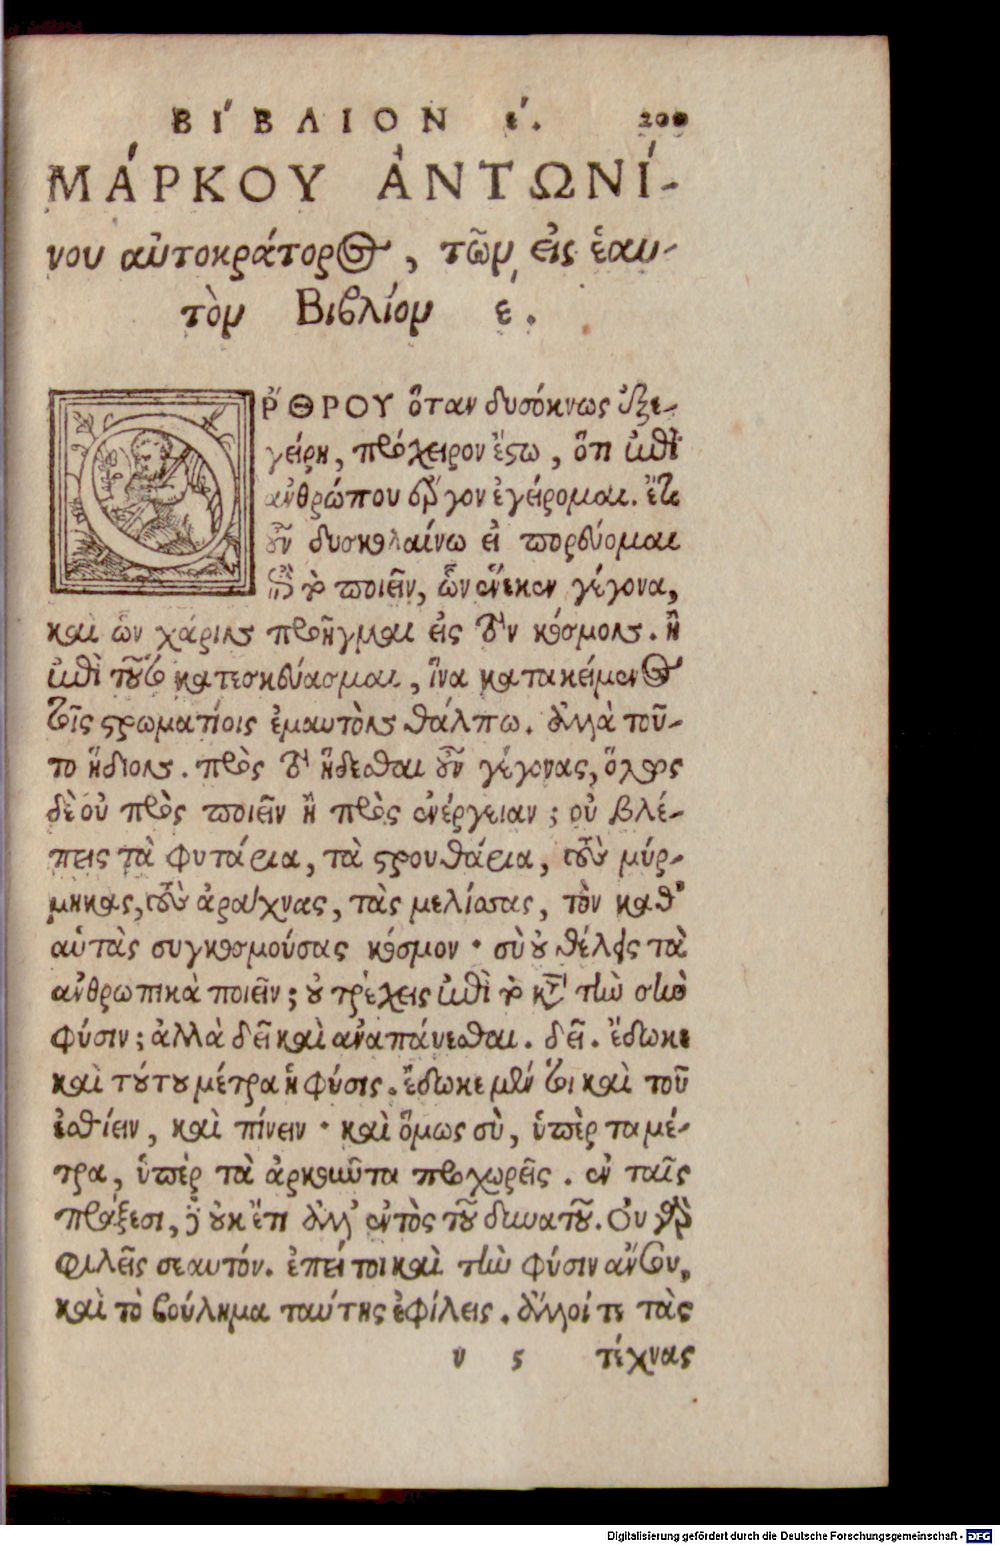 ΒΙ´ΒΛΙΟΝ ε´. 200
ΜΑ´ΡΚΟΥ ἈΝΤΩΝΙ´-
νου αὐτοκράτορος, τῶν εἰς ἑαυ-
τὸν Βιβλίον ε´.
ὌΡΘΡΟΥ ὅταν δυσόκνως ἐξε-
γείρῃ, πρόχειρον ἔστω, ὅτι ἐπὶ
ἀνθρώπου ἔργον ἐγείρομαι. ἔτι
οὖν δυσκολαίνω εἰ πορεύομαι
ἐπὶ τὸ ποιεῖν, ὧν ἕνεκεν γέγονα,
καὶ ὧν χάριν προῆγμαι εἰς τὸν κόσμον. ἢ
ἐπὶ τούτῳ κατεσκεύασμαι, ἵνα κατακείμενος
τοῖς στρωματίοις ἐμαυτὸν θάλπω. ἀλλὰ τοῦ-
το ἥδιον. πρὸς τὸ ἥδεσθαι οὖν γέγονας, ὅλως
δὲ οὐ πρὸς ποιεῖν ἢ πρὸς ἐνέργειαν; οὐ βλέ-
πεις τὰ φυτάρια, τὰ στρουθάρια, τοὺς μύρ-
μηκας, τοὺς ἀράχνας, τὰς μελίσσας, τὸν καθ’
αὑτὰς συγκοσμούσας κόσμον· σὺ οὐ θέλεις τὰ
ἀνθρωπικὰ ποιεῖν; οὐ τρέχεις ἐπὶ τὸ κατὰ τὴν σὴν
φύσιν; ἀλλὰ δεῖ καὶ ἀναπάυεσθαι. δεῖ. ἔδωκε
καὶ τούτου μέτρα ἡ φύσις. ἔδωκε μέν τοι καὶ τοῦ
ἐσθίειν, καὶ πίνειν· καὶ ὅμως σὺ, ὑπὲρ τα μέ-
τρα, ὑπὲρ τὰ ἀρκοῦντα προχωρεῖς. ἐν ταῖς
πράξεσι, δὲ οὐκ ἔτι ἀλλ’ ἐντὸς τοῦ δυνατοῦ. Οὐ γὰρ
φιλεῖς σεαυτόν. ἐπεί τοι καὶ τὴν φύσιν ἄν σου,
καὶ τὸ βούλημα ταύτης ἐφίλεις. ἄλλοί τε τὰς
υ 5 τέχνας
Digitalisierung gefördert durch die Deutsche Forschungsgemeinschaft - DFG